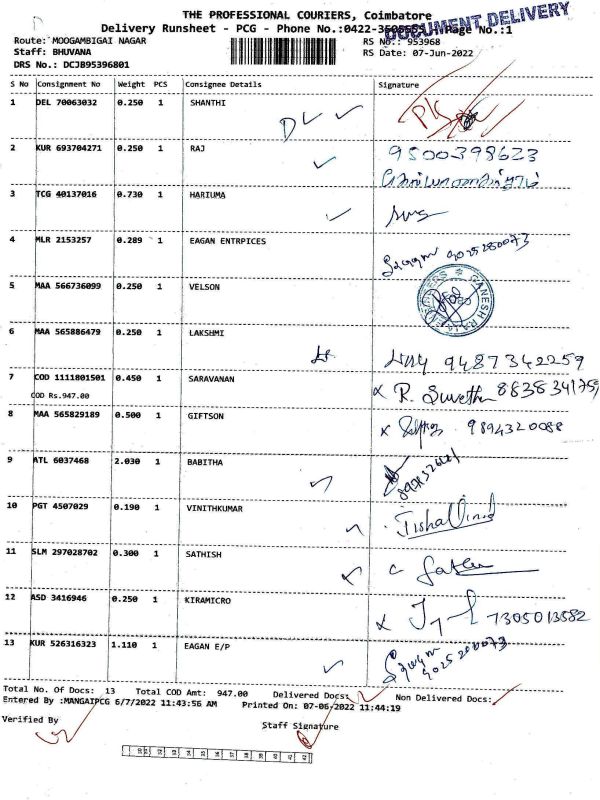 THE PROFESSIONAL COURIERS, Coimbatore
DOCUMENT DELIVERY
Delivery Runsheet - PCG - Phone No.:0422- Page No.:1
Route: MOOGAMBIGAI NAGAR RS No.: 953968
Staff: BHUVANA RS Date: 07-Jun-2022
DRS No.: DCJB95396801
S No Consignment No Weight PCS Consignee Details Signature
1 DEL 70063032 0.250 1 SHANTHI
2 KUR 693704271 0.250 1 RAJ 9500398623
3 TCG 40137016 0.730 1 HARIUMA
4 MLR 2153257 0.289 1 EAGAN ENTRPICES
5 MAA 566736099 0.250 1 VELSON
GANESH RAJA
6 MAA 565886479 0.250 1 LAKSHMI 9487342259
7 COD 1111801501 0.450 1 SARAVANAN x R. Suvetha
COD Rs.947.00
8 MAA 565829189 0.500 1 GIFTSON x 9894320088
9 ATL 6037468 2.030 1 BABITHA
10 PGT 4507029 0.190 1 VINITHKUMAR
11 SLM 297028702 0.300 1 SATHISH
12 ASD 3416946 0.250 1 KIRAMICRO x 7305013582
13 KUR 526316323 1.110 1 EAGAN E/P
Total No. Of Docs: 13 Total COD Amt: 947.00 Delivered Docs: Non Delivered Docs:
Entered By :MANGAIPCG 6/7/2022 11:43:56 AM Printed On: 07-06-2022 11:44:19
Verified By Staff Signature